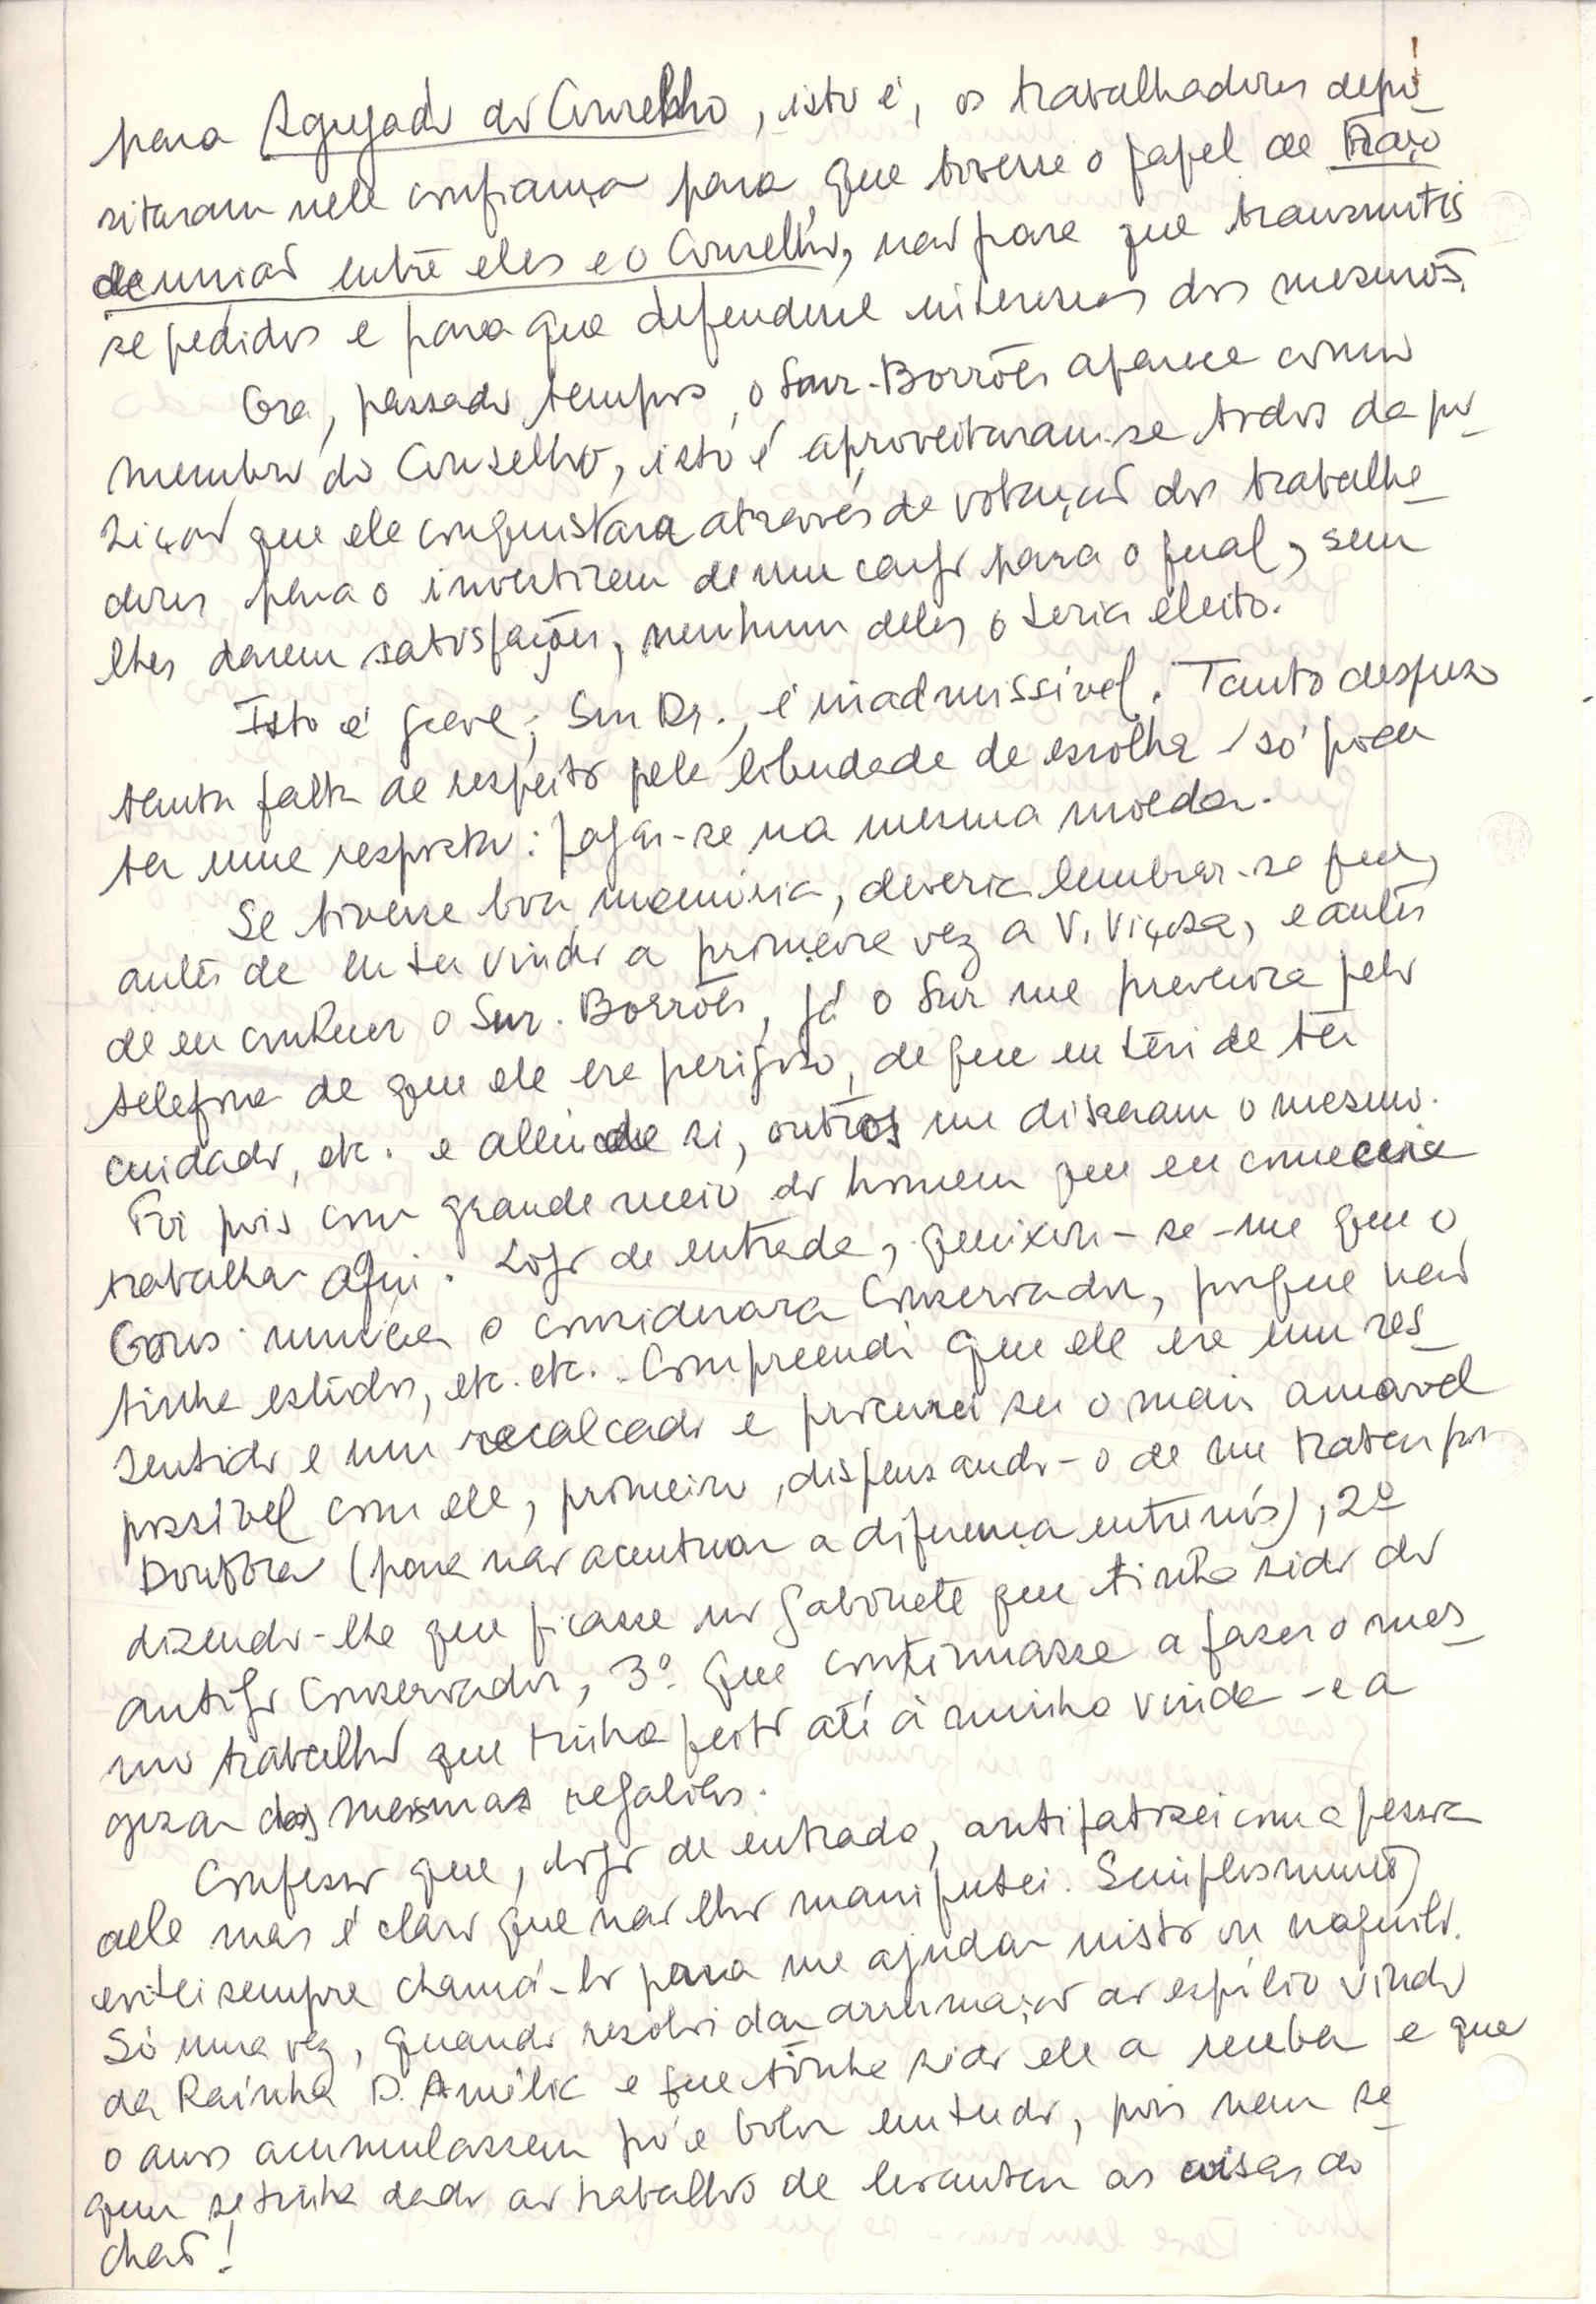 para Agregado do Conselho, isto é, os trabalhadores depo-
sitaram nele confiança para que tivesse o papel de traço
de união entre eles e o Conselho, não para que transmitis
se pedidos e para que defendesse interesses dos mesmos.
Ora, passado tempos, o Snr. Borrões aparece como
membro do Conselho, isto é aproveitaram-se todos da po-
sição que ele conquistara através de votação dos trabalha-
dores para o investirem de um cargo para o qual, sem
lhes darem satisfações, nenhum deles o teria eleito.
Isto é grave, Snr Dr., é inadmissível. Tanto desprezo
tanta falta de respeito pela liberdade de escolha, só poder
ter uma resposta: pagar-se na mesma moeda.
Se tivesse boa memória, deveria lembrar-se que,
antes de eu ter vindo a primeira vez a V. Viçosa, e antes
de eu conhecer o Snr. Borrões, já o Snr me prevenira pelo
telefone de que ele era perigoso, de que eu teria de ter
cuidado, etc. e além de si, outros me disseram o mesmo.
Foi pois com grande receio do homem que eu comecei a
trabalhar aqui. Logo de entrada, queixou-se-me que o
Cons. nunca o considerara Conservador, porque não
tinha estudos, etc. etc. Compreendi que ele era um res-
sentido e um recalcado e procurei ser o mais amavel
possível com ele, primeiro, dispensando-o de me tratar por
Doutora (para não acentuar a diferença entre nós), 2º
dizendo-lhe que ficasse no gabinete que tinha sido do
antigo Conservador, 3º que continuasse a fazer o mes-
mo trabalho que tinha feito até à minha vinda - e a
gozar das mesmas regalias.
Confesso que, logo de entrada, antipatizei com a pessoa
dele mas é claro que não lho manifestei. Simplesmente,
evitei sempre chamá-lo para me ajudar nisto ou naquilo.
Só uma vez, quando resolvi dar arrumação ao espólio vindo
da Rainha D. Amélia e que tinha sido ele a receber e que
o anos acumulassem pó e bolor em tudo, pois nem se-
quer se tinha dado ao trabalho de levantar as coisas do
chão!